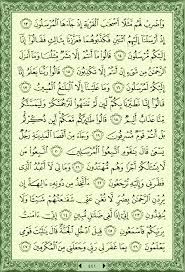 وَاضْرِبْ لَهُم مَّثَلًا أَصْحَٰبَ الْقَرْيَةِ إِذْ جَآءَهَا الْمُرْسَلُونَ ١٣
إِذْ أَرْسَلْنَآ إِلَيْهِمُ اثْنَيْنِ فَكَذَّبُوهُمَا فَعَزَّزْنَا بِثَالِثٍ فَقَالُوٓا۟
إِنَّآ إِلَيْكُم مُّرْسَلُونَ ١٤ قَالُوا۟ مَآ أَنتُمْ إِلَّا بَشَرٌ مِّثْلُنَا وَمَآ أَنزَلَ
الرَّحْمَٰنُ مِن شَىْءٍ إِنْ أَنتُمْ إِلَّا تَكْذِبُونَ ١٥ قَالُوا۟ رَبُّنَا يَعْلَمُ إِنَّآ
إِلَيْكُمْ لَمُرْسَلُونَ ١٦ وَمَا عَلَيْنَآ إِلَّا الْبَلَٰغُ الْمُبِينُ ١٧
قَالُوٓا۟ إِنَّا تَطَيَّرْنَا بِكُمْ لَئِن لَّمْ تَنتَهُوا۟ لَنَرْجُمَنَّكُمْ وَلَيَمَسَّنَّكُم
مِّنَّا عَذَابٌ أَلِيمٌ ١٨ قَالُوا۟ طَٰٓئِرُكُم مَّعَكُمْ أَئِن ذُكِّرْتُم
بَلْ أَنتُمْ قَوْمٌ مُّسْرِفُونَ ١٩ وَجَآءَ مِنْ أَقْصَا الْمَدِينَةِ رَجُلٌ
يَسْعَىٰ قَالَ يَٰقَوْمِ اتَّبِعُوا۟ الْمُرْسَلِينَ ٢٠ اتَّبِعُوا۟ مَن
لَّا يَسْـَٔلُكُمْ أَجْرًا وَهُم مُّهْتَدُونَ ٢١ وَمَا لِىَ لَآ أَعْبُدُ الَّذِى
فَطَرَنِى وَإِلَيْهِ تُرْجَعُونَ ٢٢ ءَأَتَّخِذُ مِن دُونِهِۦٓ ءَالِهَةً إِن
يُرِدْنِ الرَّحْمَٰنُ بِضُرٍّ لَّا تُغْنِ عَنِّى شَفَٰعَتُهُمْ شَيْـًٔا
وَلَا يُنقِذُونِ ٢٣ إِنِّىٓ إِذًا لَّفِى ضَلَٰلٍ مُّبِينٍ ٢٤ إِنِّىٓ ءَامَنتُ
بِرَبِّكُمْ فَاسْمَعُونِ ٢٥ قِيلَ ادْخُلِ الْجَنَّةَ قَالَ يَٰلَيْتَ قَوْمِى
يَعْلَمُونَ ٢٦ بِمَا غَفَرَ لِى رَبِّى وَجَعَلَنِى مِنَ الْمُكْرَمِينَ ٢٧
٤٤١